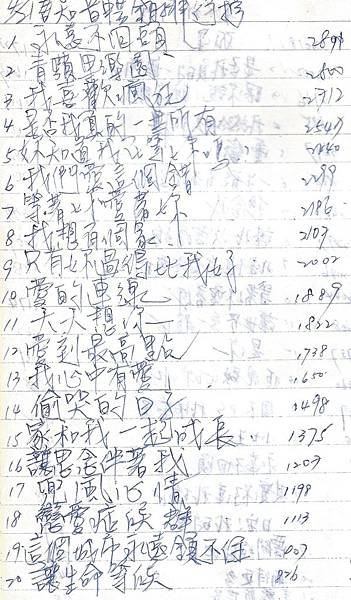 知音 排行榜
1 永遠不回頭
2 青蘋果樂園 2800
3 我喜歡 2712
4 是否我真的一無所有 2547
5 妳知道我在等妳嗎 2440
6 我們愛這個錯 2299
7 等著妳愛著妳 2186
8 我想有個家 2107
9 只有妳過得比我好 2002
10 愛的連線 1889
11 天天想你 1822
12 愛到最高點 1738
13 我心中有愛 1650
14 偷哭的日子 1498
15 家和我一起成長 1375
16 讓思念伴著我 1203
17 兜風心情 1198
18 戀愛症候群 1113
19 這個城市永遠鎖不住 1007
20 讓生命等候 876